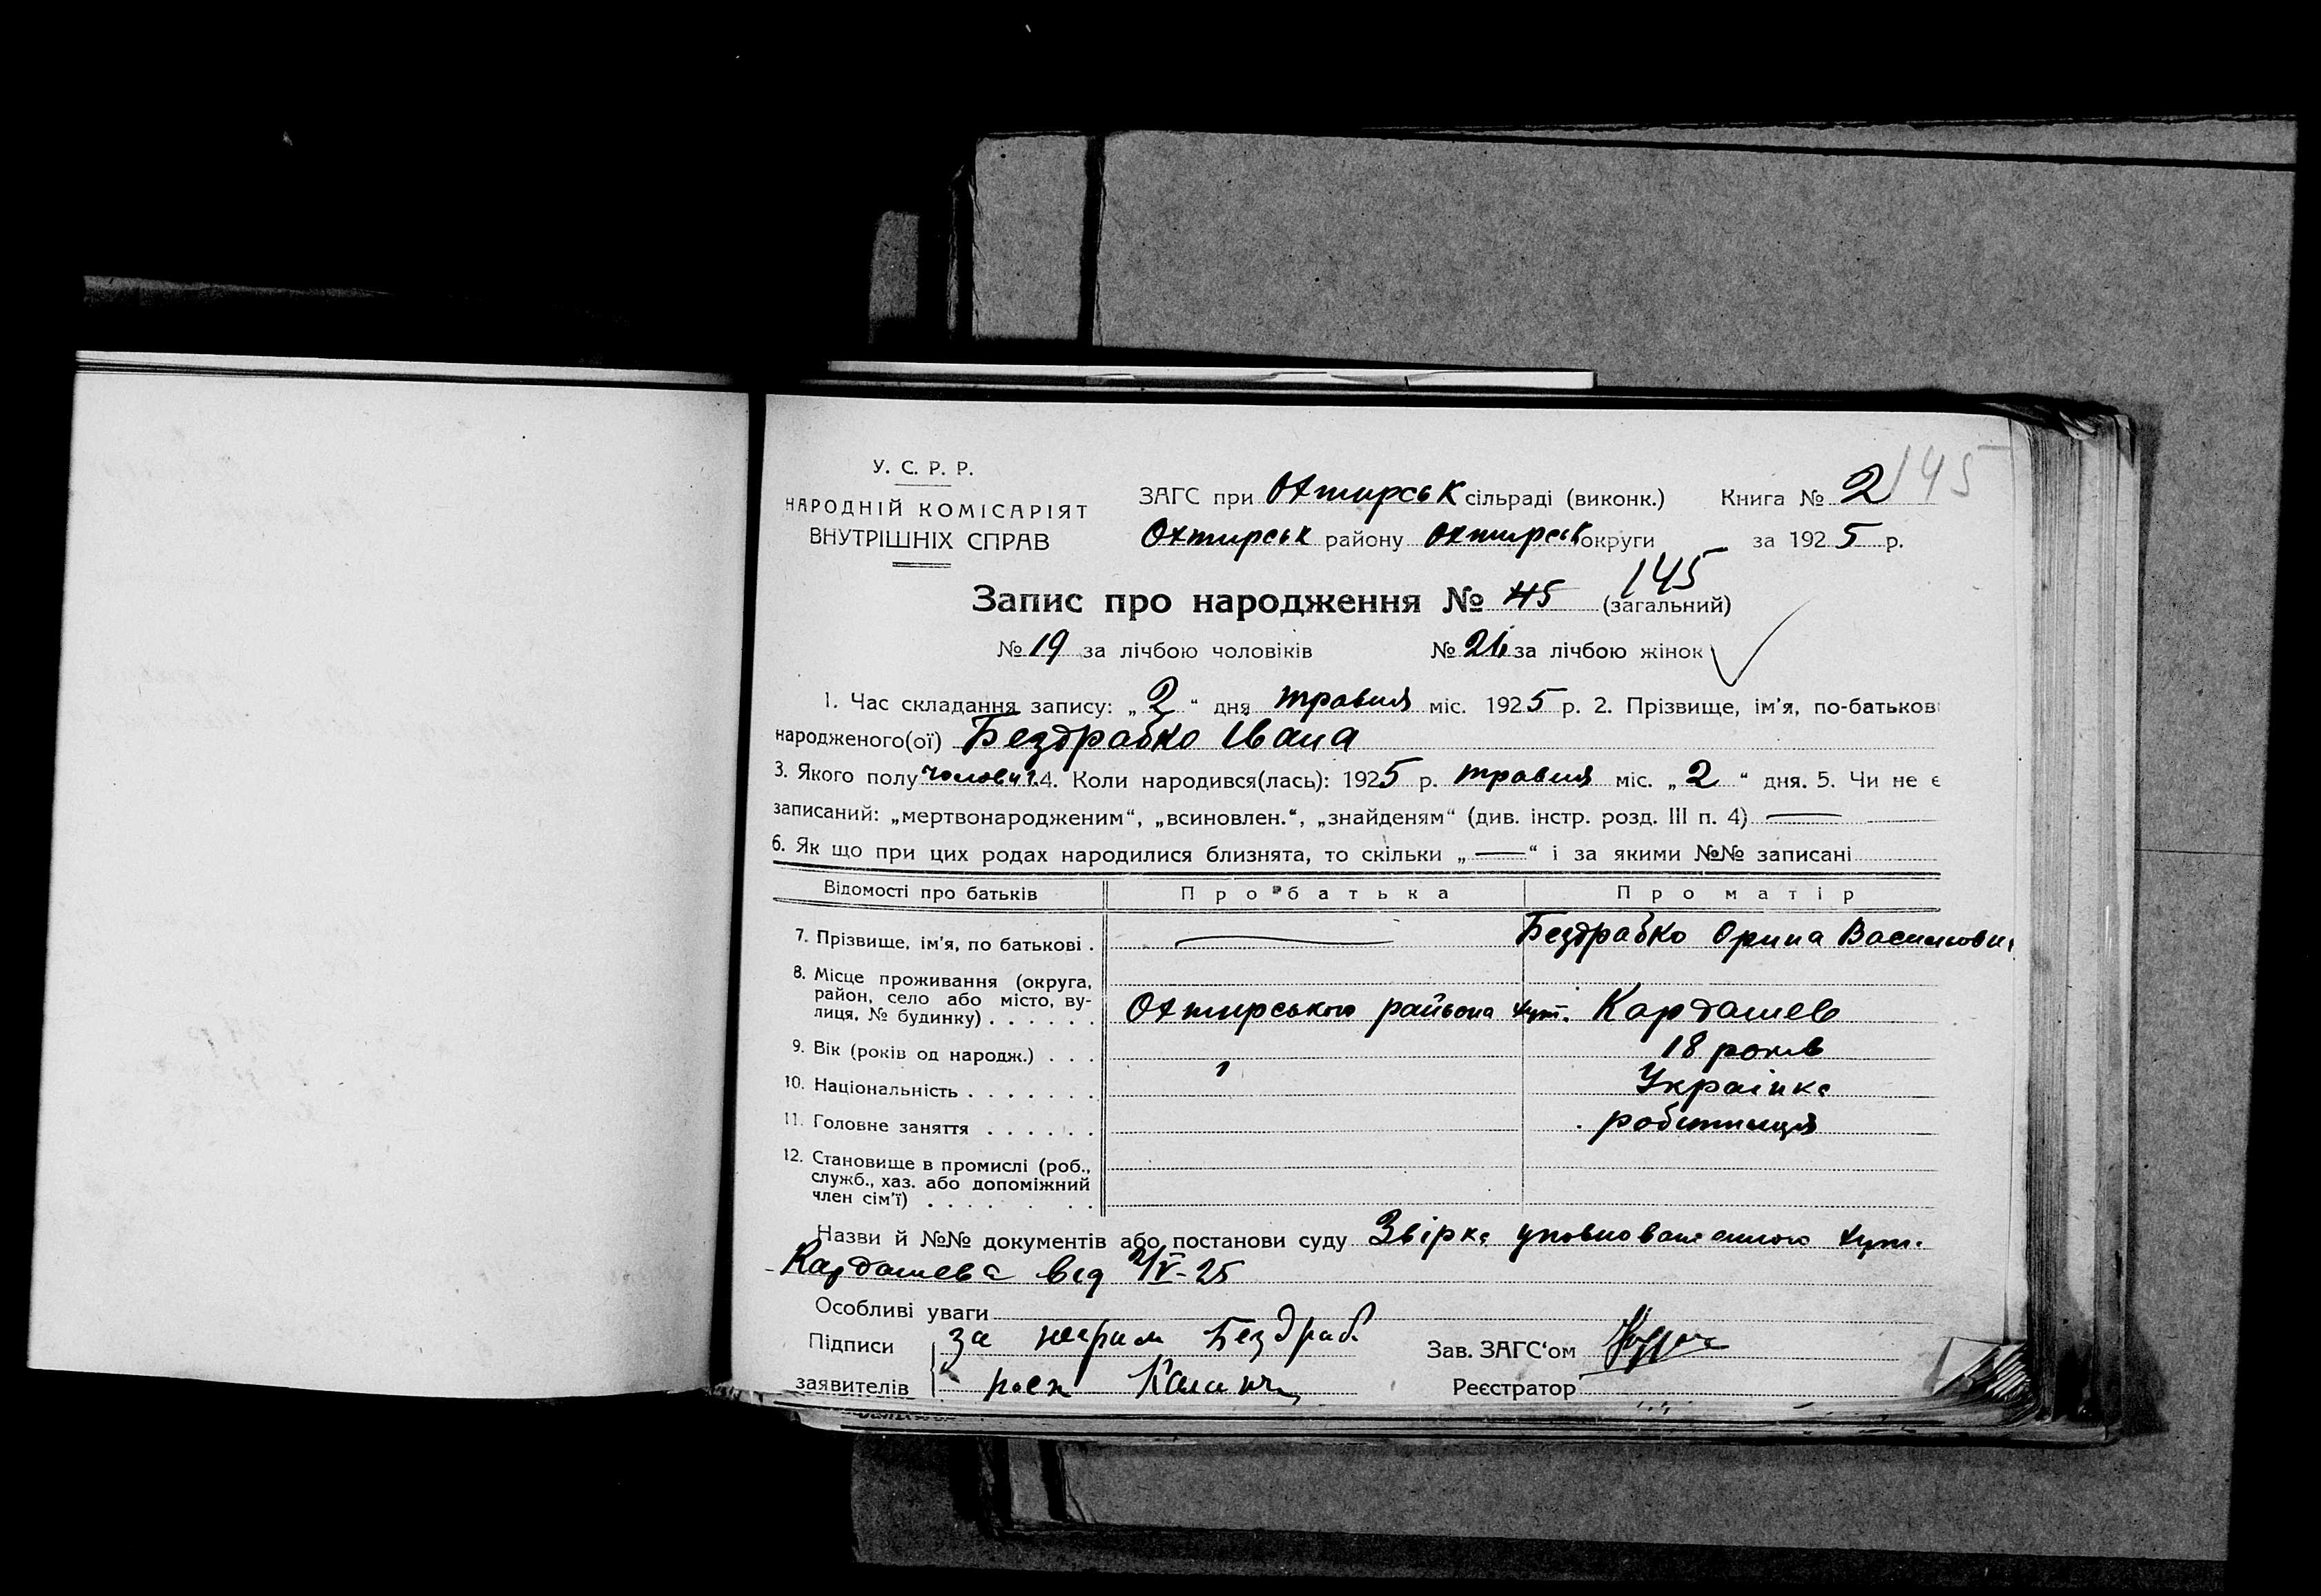 145
У. С. Р. Р.
НАРОДНІЙ КОМІСАРІЯТ
ВНУТРІШНІХ СПРАВ
ЗАГС при Охтирськ сільраді (виконк.) Книга № 2
Охтирськ району Охтирськ округи за 1925 р.
145
Запис про народження № 45 (загальний)
№ 19 за лічбою чоловіків № 26 за лічбою жінок
1. Час складання запису: „ 2 “ дня травня міс. 1925 р. 2. Прізвище, ім'я, по-батькові
народженого(ої) Бездрабко Івана
3. Якого полу чоловіч. 4. Коли народився(лась): 1925 р. травня міс. „ 2 “ дня. 5. Чи не є
записаний: „мертвонародженим“, „всиновлен.“, „знайденям“ (див. інстр. розд. III п. 4)
6. Як що при цих родах народилися близнята, то скільки „ — “ і за якими №№ записані
Відомості про батьків Про батька Про матір
7. Прізвище, ім'я, по батькові . Бездрабко Орина Василовн
8. Місце проживання (округа,
район, село або місто, ву-
лиця, № будинку) . . . . . . Охтирського района хут. Кардашев
9. Вік (років од народж.) . . . 18 років
10. Національність . . . . . . . Українка
11. Головне заняття . . . . . . робітниця
12. Становище в промислі (роб.,
служб., хаз. або допоміжний
член сім'ї) . . . . . . .
Назви й №№ документів або постанови суду Звірка уповноваженного хут.
Кардашева від 2/V-25
Особливі уваги
Підписи за Бездраб.
заявителів
Зав. ЗАГС'ом
Реєстратор